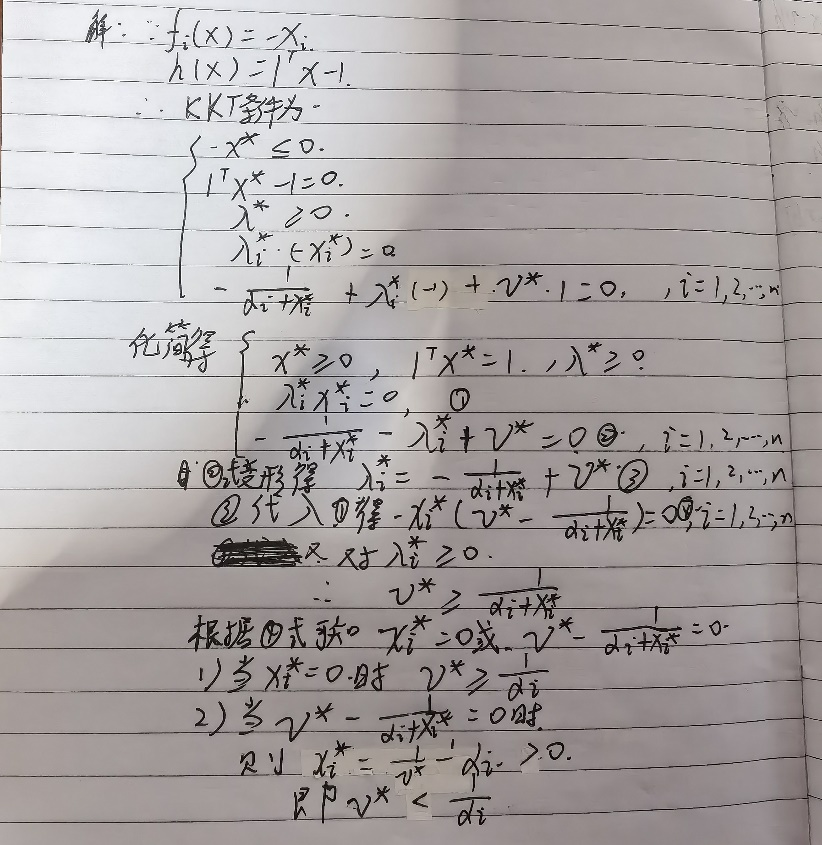 解: ∵ fᵢ(x) = -xᵢ.
h(x) = 1ᵀx-1.
∴ KKT条件为
-x* ≤ 0.
1ᵀx* -1 = 0.
λ* ≥ 0.
λᵢ*·(-xᵢ*) = 0
- 1/(αᵢ+xᵢ*) + λᵢ*(-1) + ν*·1 = 0, , i=1,2,…,n
化简得 x* ≥ 0, 1ᵀx* = 1. , λ* ≥ 0
λᵢ*xᵢ* = 0, ①
- 1/(αᵢ+xᵢ*) - λᵢ* + ν* = 0 ②, i=1,2,…,n
由②式变形得 λᵢ* = - 1/(αᵢ+xᵢ*) + ν* ③, i=1,2,…,n
③代入①得 -xᵢ*(ν* - 1/(αᵢ+xᵢ*)) = 0 ④, i=1,2,…,n
又对 λᵢ* ≥ 0.
∴ ν* ≥ 1/(αᵢ+xᵢ*)
根据④式 xᵢ* = 0或 ν* - 1/(αᵢ+xᵢ*) = 0.
1) 当 xᵢ* = 0时 ν* ≥ 1/αᵢ
2) 当 ν* - 1/(αᵢ+xᵢ*) = 0时.
则 xᵢ* = 1/ν* - αᵢ > 0.
即 ν* < 1/αᵢ